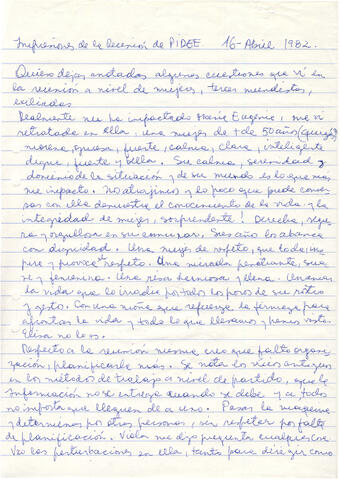 Impresiones de la Reunión de PIDEE 16-Abril 1982.
Quiero dejar anotadas algunas cuestiones que vi en
la reunión a nivel de mujeres, tercer mundistas,
exiliadas
Realmente me ha impactado María Eugenia, me vi
retratada en ella, una mujer de + de 50 años (quizás)
morena, gruesa, fuerte, calma, clara, inteligente
dulce, fuerte y bella. Su calma, serenidad y
dominio de la situación y de su mundo es lo que más
me impacto. No la conozco y lo poco que pude conver
sar con ella demuestra el conocimiento de la vida y la
integridad de mujer, sorprendente! Derecha, segu
ra y orgullosa en su caminar. Sus años los abanica
con dignidad. Una mujer de respeto, que todo ins
pire y provoca respeto. Una mirada penetrante, sua
ve y femenina. Una risa hermosa y llena.
La vida que lo irradia por todos los poros de su rostro
y gesto. Con una moñe que refuerza la firmeza para
afrontar la vida y todo lo que llevamos y hemos visto.
Elisa no la es.
Respecto a la reunión misma, creo que faltó organi
zación, planificarla más. Se nota los vicios antiguos
en los métodos de trabajo a nivel de partido, que la
información no se entrega cuando se debe y a todos
no importa que lleguen de a uno. Pasar la
y determinar por otras personas, sin respetar por falta
de planificación. Viola me dijo pregunta cualquier cosa
Veo las perturbaciones en ella, tanto para dirigir como